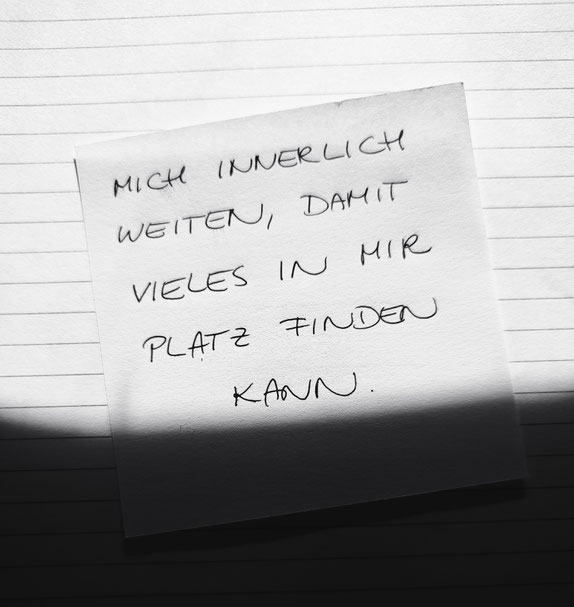 MICH INNERLICH
WEITEN, DAMIT
VIELES IN MIR
PLATZ FINDEN
KANN.